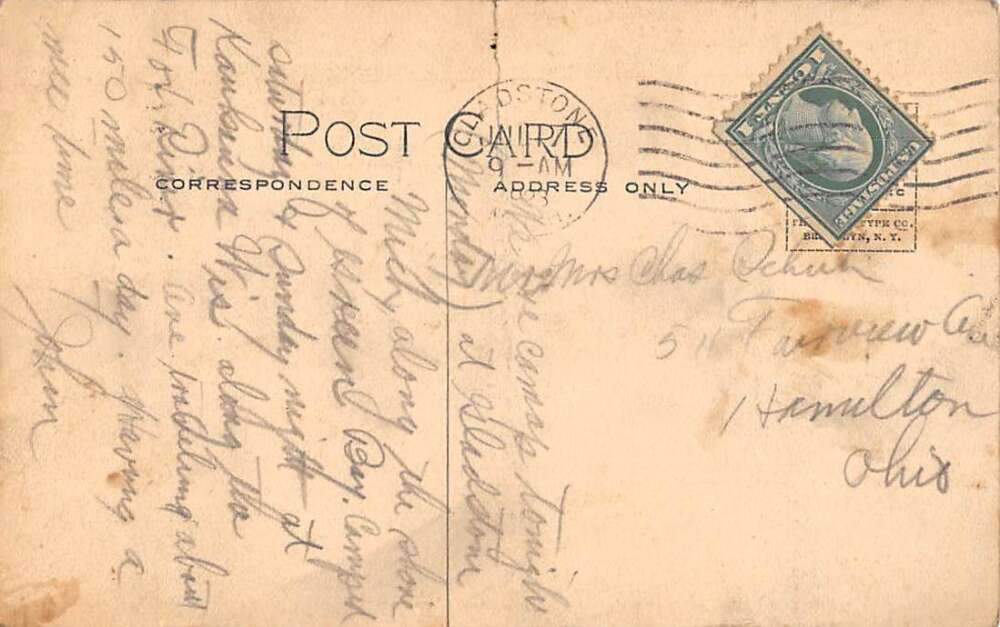 POST CARD
CORRESPONDENCE
ADDRESS ONLY
GLADSTONE
9-AM
U.S. POSTAGE
1 CENT 1
TYPE CO.
BROOKLYN, N. Y.
Mr & Mrs Chas
511 Fairview Ave
Hamilton
Ohio
We are camap tonight
(Monday) at Gladstone
Mich, along the shore
of Green Bay. Camped
Sunday night at
Kaukana Wis. along the
Fox River. are traveling about
150 miles a day. Having a
nice time
John